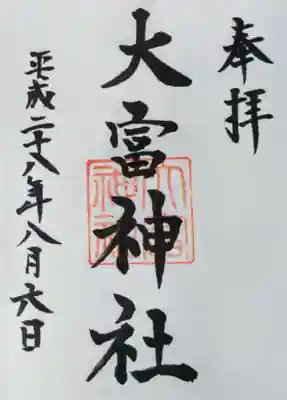 奉拝
大富神社
平成二十八年八月六日
大富神社